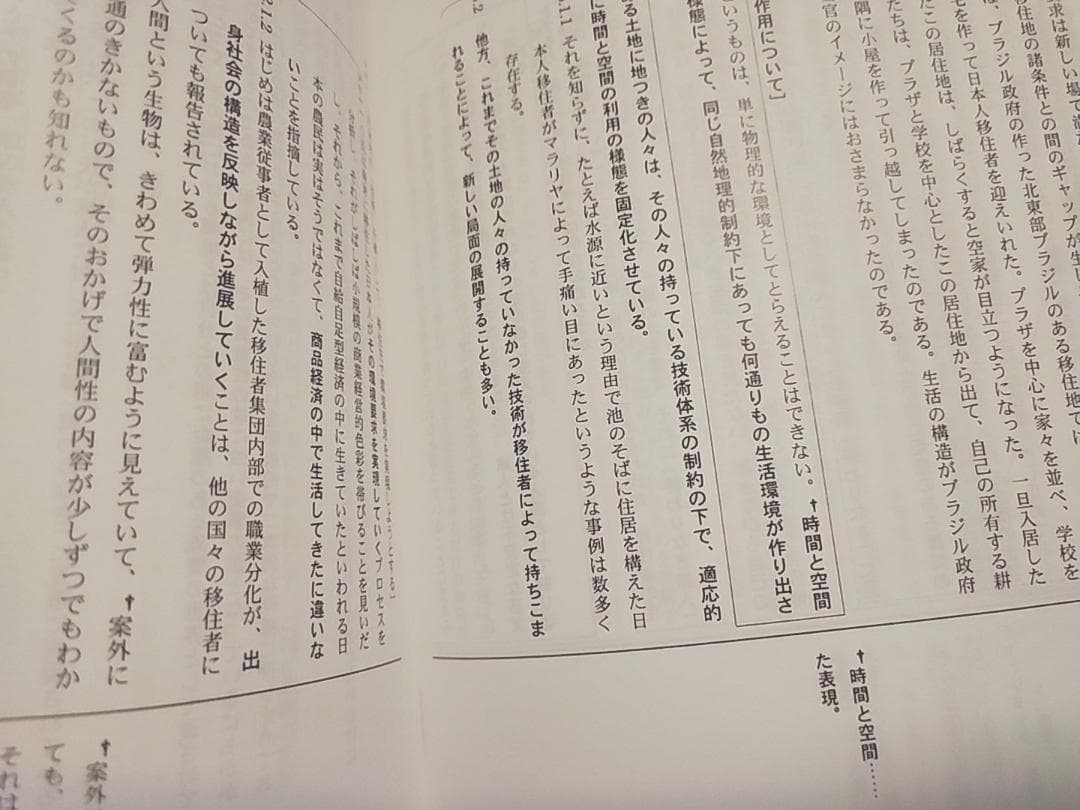 求は新しい場で
移住地の諸条件との間のギャップが生
は、ブラジル政府の作った北東部ブラジルのある移住地では、
宅を作って日本人移住者を迎えいれた。プラザを中心に家々を並べ、学校を
たこの居住地は、しばらくすると空家が目立つようになった。一旦入居した
たちは、プラザと学校を中心としたこの居住地から出て、自己の所有する耕
隅に小屋を作って引っ越してしまったのである。生活の構造がブラジル政府
官のイメージにはおさまらなかったのである。
作用について]
というものは、単に物理的な環境としてとらえることはできない。†時間と空間
様態によって、同じ自然地理的制約下にあっても何通りもの生活環境が作り出さ
る土地に地つきの人々は、その人々の持っている技術体系の制約の下で、適応的
に時間と空間の利用の様態を固定化させている。
1.1 それを知らずに、たとえば水源に近いという理由で池のそばに住居を構えた日
本人移住者がマラリヤによって手痛い目にあったというような事例は数多く
存在する。
.2 他方、これまでその土地の人々の持っていなかった技術が移住者によって持ちこま
れることによって、新しい局面の展開することも多い。
†時間と空間……
た表現。
人がその環境要求を実現していくプロセスを
それがしばしば小規模の商業経営的色彩を帯びることを見いだ
し、それから、これまで自給自足型経済の中に生きていたといわれる日
本の農民は実はそうではなくて、商品経済の中で生活してきたに違いな
いことを指摘している。
2.1.2 はじめは農業従事者として入植した移住者集団内部での職業分化が、出
身社会の構造を反映しながら進展していくことは、他の国々の移住者に
ついても報告されている。
人間という生物は、きわめて弾力性に富むように見えていて、†案外に
通のきかないもので、そのおかげで人間性の内容が少しずつでもわか
くるのかも知れない。
†案外
ても、
それは